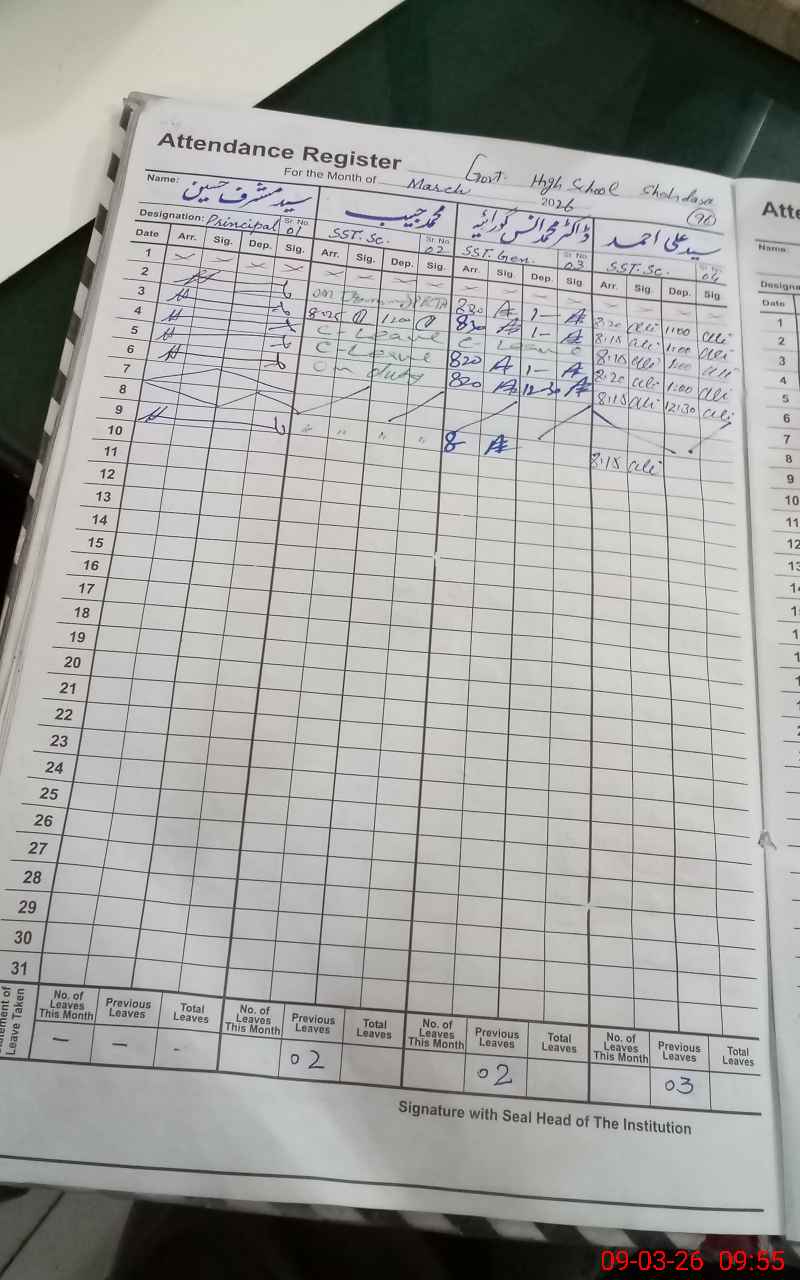 Attendance Register Govt. High School Shahdara
For the Month of March 2026 (96)
Name: سید مشرف حسین محمد حبیب ڈاکٹر محمد انس گورائیہ سید علی احمد
Designation: Principal Sr. No 01 SST.Sc. Sr. No 02 SST.Gen. Sr. No 03 SST.Sc. Sr. No 04
Date Arr. Sig. Dep. Sig. Arr. Sig. Dep. Sig. Arr. Sig. Dep. Sig. Arr. Sig. Dep. Sig.
1
2 830 1- 8:20 ali 1:00 ali
3 8:25 1:00 830 1- 8:15 ali 1:00 ali
4 C-Leave C-Leave 8:15 ali 1:00 ali
5 C-Leave 820 1- 8:20 ali 1:00 ali
6 on duty 820 12:30 8:15 ali 12:30 ali
7
8
9 " " " " 8- 8:15 ali
10
11
12
13
14
15
16
17
18
19
20
21
22
23
24
25
26
27
28
29
30
31
Leave Taken
No. of Leaves This Month Previous Leaves Total Leaves No. of Leaves This Month Previous Leaves Total Leaves No. of Leaves This Month Previous Leaves Total Leaves No. of Leaves This Month Previous Leaves Total Leaves
— — - 02 02 03
Signature with Seal Head of The Institution
Atte
Name:
Designa
Date
1
2
3
4
5
6
7
8
9
10
11
12
13
09-03-26 09:55